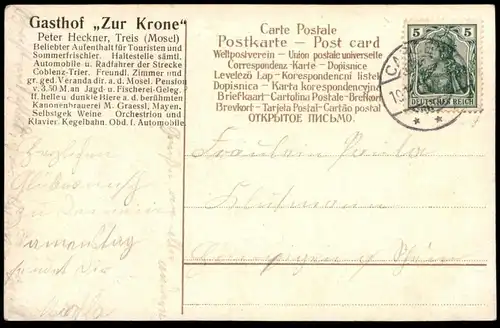 Gasthof „Zur Krone"
Peter Heckner, Treis (Mosel)
Beliebter Aufenthalt für Touristen und
Sommerfrischler. Haltestelle sämtl.
Automobile u. Radfahrer der Strecke
Coblenz-Trier. Freundl. Zimmer und
gr. ged. Veranda dir. a. d. Mosel. Pension
v. 3.50 M. an Jagd- u. Fischerei-Geleg.
ff. helle u. dunkle Biere a. d. berühmten
Kanonenbrauerei M. Graessl, Mayen.
Selbstgek Weine Orchestrion und
Klavier. Kegelbahn. Obd. f. Automobile.
Carte Postale
Postkarte – Post card
Weltpostverein – Union postale universelle
Correspondenz-Karte – Dopisnice
Levelező Lap – Korespondenční listek
Dopisnica – Karta korespondencyjna
Briefkaart – Cartolina Postale – Brefkort
Brevkort – Tarjeta Postal – Cartão postal
ОТКРЫТОЕ ПИСЬМО.
5 5
DEUTSCHES REICH
Herzlichen
Glückwunsch
zu Deinem
Namenstag
sendet Dir
Fräulein